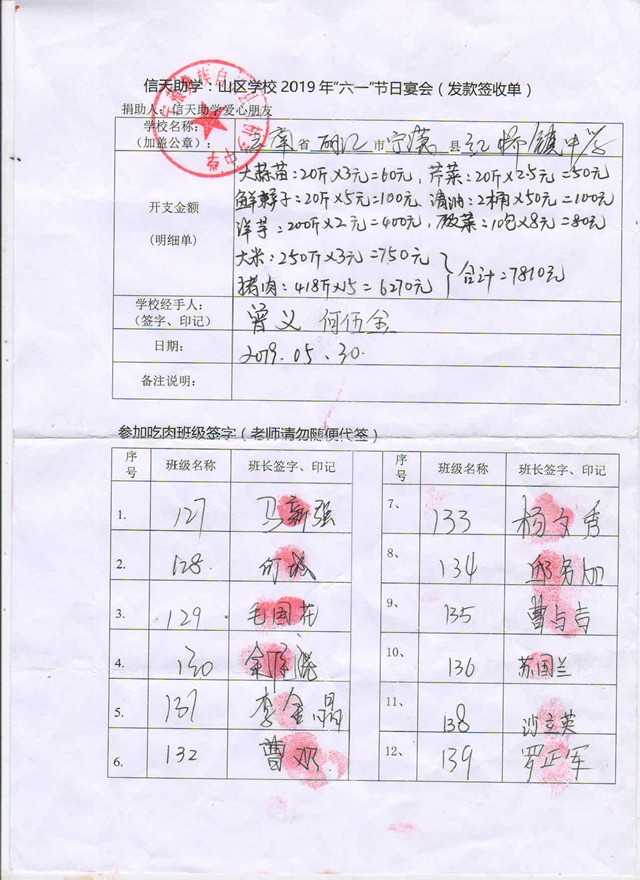 信天助学：山区学校2019年“六一”节日宴会（发款签收单）
捐助人：信天助学爱心朋友
学校名称：
（加盖公章）：
云南省丽江市宁蒗县红桥镇中学
开支金额
（明细单）
大蒜苗：20斤×3元=60元，芹菜：20斤×2.5元=50元
鲜辣子：20斤×5元=100元 清油：2桶×50元=100元
洋芋：200斤×2元=400元，酸菜：10包×8元=80元
大米：250斤×3元=750元
猪肉：418斤×15=6270元
合计=7810元
学校经手人：
（签字、印记）
曾义 何伍金
日期：
2019.05.30.
备注说明：
参加吃肉班级签字（老师请勿随便代签）
序号 班级名称 班长签字、印记 序号 班级名称 班长签字、印记
1. 127 马新强 7、 133 杨文秀
2. 128. 何 8、 134 邱
3. 129 毛国花 9、 135 曹
4. 130 10、 136 苏国兰
5. 131 李金晶 11、 138 沙立英
6. 132 曹 12、 139 罗正军